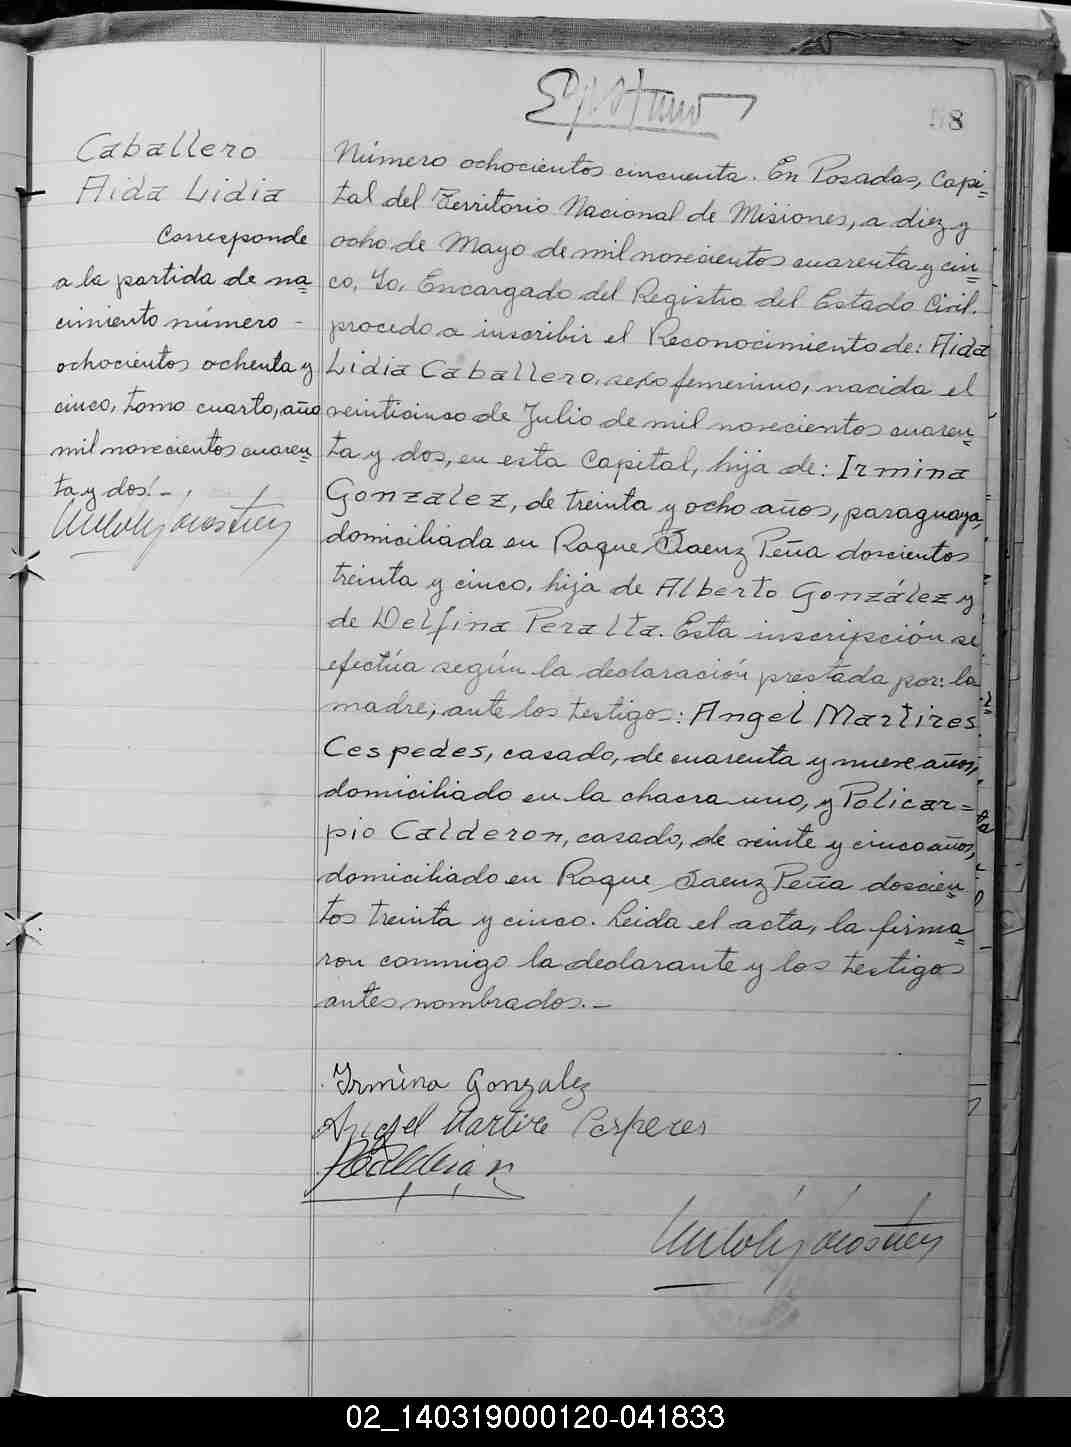 58
Caballero
Aida Lidia
Corresponde
a la partida de na=
cimiento número -
ochocientos ochenta y
cinco, tomo cuarto, año
mil novecientos cuaren=
ta y dos.-
Número ochocientos cincuenta. En Posadas, Capi=
tal del Territorio Nacional de Misiones, a diez y
ocho de Mayo de mil novecientos cuarenta y cin=
co, Yo, Encargado del Registro del Estado Civil.
procedo a inscribir el Reconocimiento de: Aida
Lidia Caballero, sexo femenino, nacida el
veinticinco de Julio de mil novecientos cuaren=
ta y dos, en esta Capital, hija de: Irmina
Gonzalez, de treinta y ocho años, paraguaya,
domiciliada en Roque Saenz Peña doscientos
treinta y cinco, hija de Alberto González y
de Delfina Peralta. Esta inscripción se
efectúa según la declaración prestada por: la
madre; ante los testigos: Angel Martires
Cespedes, casado, de cuarenta y nueve años,
domiciliado en la chacra uno, y Policar=
pio Calderon, casado, de veinte y cinco años,
domiciliado en Roque Saenz Peña doscien=
tos treinta y cinco. Leida el acta, la firma=
ron conmigo la declarante y los testigos
antes nombrados.-
Irmina Gonzalez
Angel Martire Cespedes
02_140319000120-041833